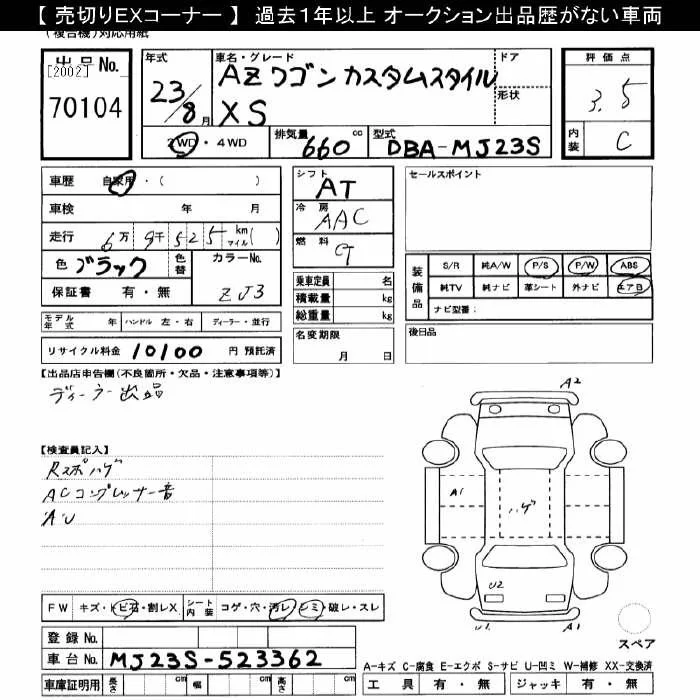 【 売切りEXコーナー 】 過去1年以上 オークション出品歴がない車両
(複合機)対応用紙
出品No.
[2002]
70104
年式
23/8月
車名・グレード
AZワゴン カスタムスタイル
XS
ドア
形状
評価点
3.5
内装
C
2WD・4WD
排気量 660 cc
型式 DBA-MJ23S
車歴 自家用・( )
車検 年 月
走行 6万 9千 525 km マイル( )
色 ブラック
色替
カラーNo.
ZJ3
保証書 有・無
シフト
AT
冷房
AAC
燃料
G
乗車定員 名
積載量 kg
総重量 kg
名変期限
月 日
セールスポイント
装備品
S/R 純A/W P/S P/W ABS
純TV 純ナビ 革シート 外ナビ エアB
ナビ型番:
後日品
モデル年式 年 ハンドル 左・右 ディーラー・並行
リサイクル料金 10100 円 預託済
【出品店申告欄(不良箇所・欠品・注意事項等)】
ディーラー出品
【検査員記入】
Rスポハゲ
ACコンプレッサー音
AU
A2
A1
ハゲ
U2
U1
A1
スペア
FW キズ・トビ石・割レX
シート内装 コゲ・穴・汚レ・シミ・破レ・スレ
登録No.
車台No. MJ23S-523362
車庫証明用 長さ cm 幅 cm 高さ cm
A-キズ C-腐食 E-エクボ S-サビ U-凹ミ W-補修 XX-交換済
工具 有・無 ジャッキ 有・無